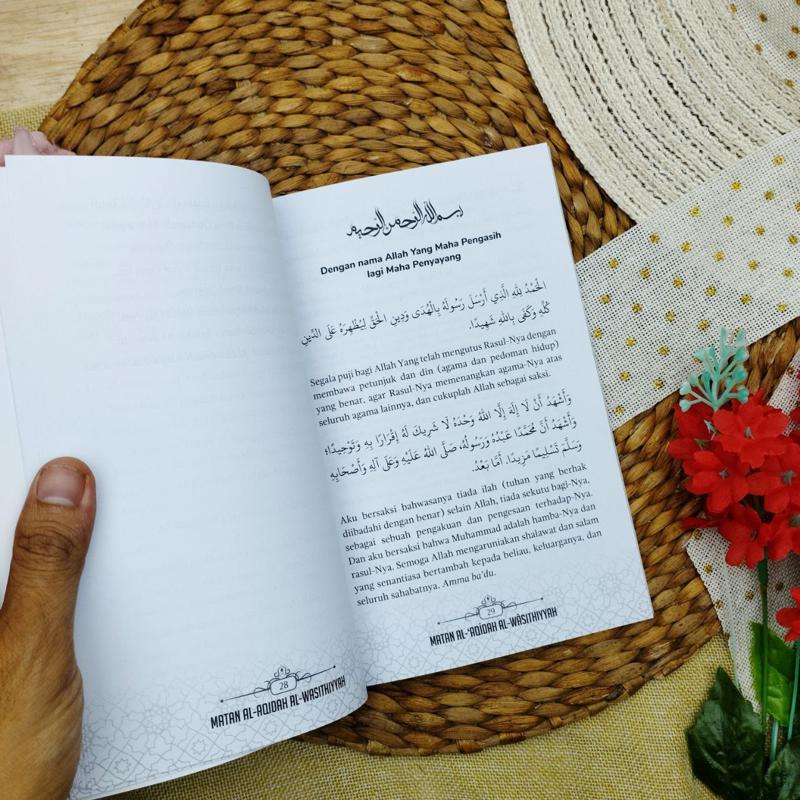 28
MATAN AL-AQIDAH AL-WASITHIYYAH
بسم الله الرحمن الرحيم
Dengan nama Allah Yang Maha Pengasih
lagi Maha Penyayang
الْحَمْدُ لِلَّهِ الَّذِي أَرْسَلَ رَسُولَهُ بِالْهُدَى وَدِينِ الْحَقِّ لِيُظْهِرَهُ عَلَى الدِّينِ
كُلِّهِ وَكَفَى بِاللهِ شَهِيدًا.
Segala puji bagi Allah Yang telah mengutus Rasul-Nya dengan
membawa petunjuk dan din (agama dan pedoman hidup)
yang benar, agar Rasul-Nya memenangkan agama-Nya atas
seluruh agama lainnya, dan cukuplah Allah sebagai saksi.
وَأَشْهَدُ أَنْ لَا إِلَهَ إِلَّا اللهُ وَحْدَهُ لَا شَرِيكَ لَهُ إِقْرَارًا بِهِ وَتَوْحِيدًا،
وَأَشْهَدُ أَنَّ مُحَمَّدًا عَبْدُهُ وَرَسُولُهُ، صَلَّى اللهُ عَلَيْهِ وَعَلَى آلِهِ وَأَصْحَابِهِ
وَسَلَّمَ تَسْلِيمًا مَزِيدًا. أَمَّا بَعْدُ.
Aku bersaksi bahwasanya tiada ilah (tuhan yang berhak
diibadahi dengan benar) selain Allah, tiada sekutu bagi-Nya,
sebagai sebuah pengakuan dan pengesaan terhadap-Nya.
Dan aku bersaksi bahwa Muhammad adalah hamba-Nya dan
rasul-Nya. Semoga Allah mengaruniakan shalawat dan salam
yang senantiasa bertambah kepada beliau, keluarganya, dan
seluruh sahabatnya. Amma ba'du.
29
MATAN AL-'AQÎDAH AL-WÂSITHIYYAH